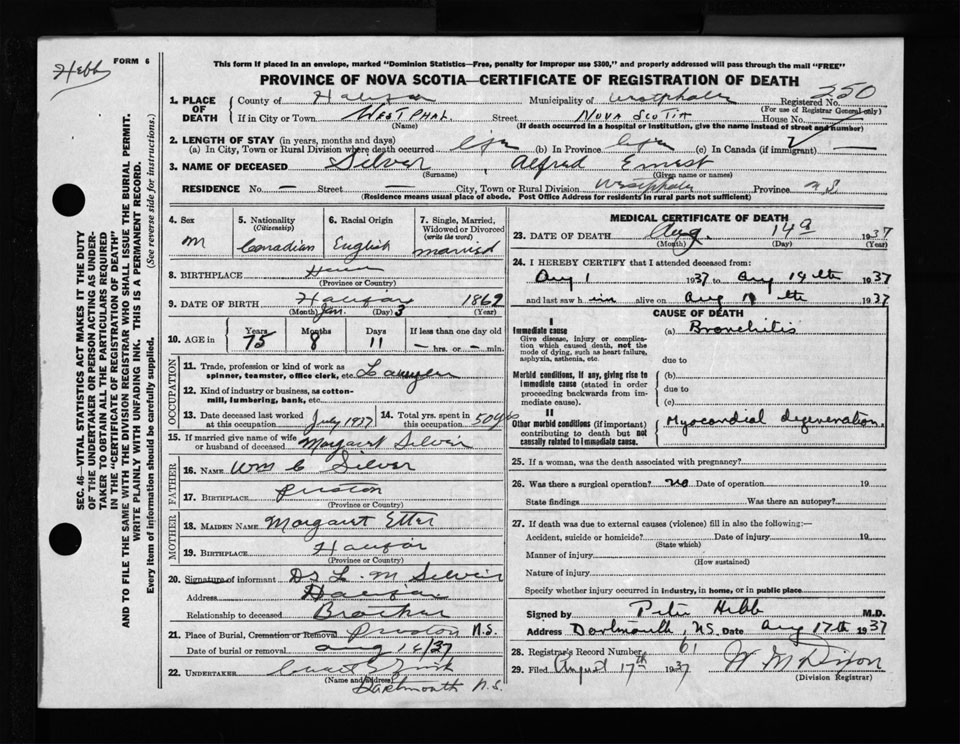 Hebb
FORM 6
This form if placed in an envelope, marked "Dominion Statistics—Free, penalty for improper use $300," and properly addressed will pass through the mail "FREE"
PROVINCE OF NOVA SCOTIA—CERTIFICATE OF REGISTRATION OF DEATH
SEC. 46—VITAL STATISTICS ACT MAKES IT THE DUTY
OF THE UNDERTAKER OR PERSON ACTING AS UNDER-
TAKER TO OBTAIN ALL THE PARTICULARS REQUIRED
IN THE "CERTIFICATE OF REGISTRATION OF DEATH"
AND TO FILE THE SAME WITH THE DIVISION REGISTRAR WHO SHALL ISSUE THE BURIAL PERMIT.
WRITE PLAINLY WITH UNFADING INK. THIS IS A PERMANENT RECORD.
Every item of information should be carefully supplied. (See reverse side for instructions.)
1. PLACE OF DEATH County of Halifax Municipality of Registered No. 550
(For use of Registrar General only)
If in City or Town WESTPHAL Street NOVA SCOTIA House No.
(Name) (If death occurred in a hospital or institution, give the name instead of street and number)
2. LENGTH OF STAY (in years, months and days)
(a) In City, Town or Rural Division where death occurred life (b) In Province life (c) In Canada (if immigrant) —
3. NAME OF DECEASED Silver Alfred Ernest
(Surname) (Given name or names)
RESIDENCE No. — Street — City, Town or Rural Division Province N.S.
(Residence means usual place of abode. Post Office Address for residents in rural parts not sufficient)
4. Sex M
5. Nationality (Citizenship) Canadian
6. Racial Origin English
7. Single, Married, Widowed or Divorced (write the word) married
8. BIRTHPLACE
(Province or Country)
9. DATE OF BIRTH Halifax Jan. 3 1862
(Month) (Day) (Year)
10. AGE in Years 75 Months 8 Days 11 If less than one day old — hrs. or — min.
OCCUPATION
11. Trade, profession or kind of work as spinner, teamster, office clerk, etc. Lawyer
12. Kind of industry or business, as cotton-mill, lumbering, bank, etc.
13. Date deceased last worked at this occupation July 1937
14. Total yrs. spent in this occupation 50 yrs
15. If married give name of wife or husband of deceased Margaret Silver
FATHER
16. NAME Wm C Silver
17. BIRTHPLACE Preston
(Province or Country)
MOTHER
18. MAIDEN NAME Margaret Etter
19. BIRTHPLACE Halifax
(Province or Country)
20. Signature of informant Dr L. M Silver
Address Halifax
Relationship to deceased Brother
21. Place of Burial, Cremation or Removal Preston N.S.
Date of burial or removal Aug 16/37
22. UNDERTAKER
(Name and Address) Dartmouth N.S.
MEDICAL CERTIFICATE OF DEATH
23. DATE OF DEATH Aug. 14 1937
(Month) (Day) (Year)
24. I HEREBY CERTIFY that I attended deceased from:
Aug 1 1937 to Aug 14th 1937
and last saw him alive on Aug th 1937
CAUSE OF DEATH
I
Immediate cause (a) Bronchitis
Give disease, injury or complication which caused death, not the mode of dying, such as heart failure, asphyxia, asthenia, etc.
due to
Morbid conditions, if any, giving rise to immediate cause (stated in order proceeding backwards from immediate cause).
(b)
due to
(c)
II
Other morbid conditions (if important) contributing to death but not causally related to immediate cause.
Myocardial degeneration.
25. If a woman, was the death associated with pregnancy?
26. Was there a surgical operation? no Date of operation 19
State findings Was there an autopsy?
27. If death was due to external causes (violence) fill in also the following:—
Accident, suicide or homicide? Date of injury 19
(State which)
Manner of injury
(How sustained)
Nature of injury
Specify whether injury occurred in industry, in home, or in public place
Signed by Peter Hebb M.D.
Address Dartmouth, NS. Date Aug 17th 1937
28. Registrar's Record Number 61
29. Filed August 17th 1937 W M Dixon
(Division Registrar)